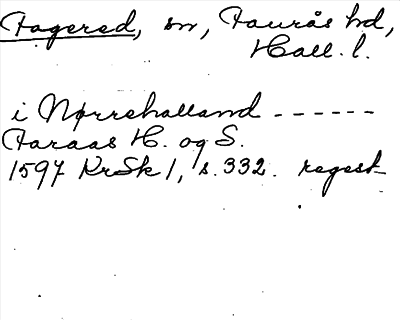 Fagered, sn, Faurås hd,
Hall. l.
i Nørrehalland ------
Faraas H. og S.
1597 KrSk 1, s. 332. regest